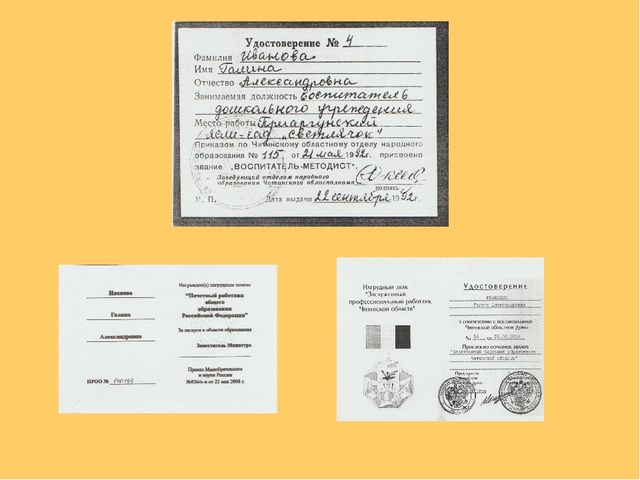 Удостоверение № 4
Фамилия Иванова
Имя Галина
Отчество Александровна
Занимаемая должность воспитатель
дошкольного учреждения
Место работы Приаргунский
ясли-сад „Светлячок"
Приказом по Читинскому областному отделу народного
образования № 115 от 21 мая 1992г. присвоено
звание „ВОСПИТАТЕЛЬ-МЕТОДИСТ".
Заведующий отделом народного
образования Читинского облисполкома
подпись
М. П. Дата выдачи 22 сентября 1992г.
Иванова
Галина
Александровна
НРОО №
Награжден(а) нагрудным знаком
"Почетный работник
общего
образования
Российской Федерации"
За заслуги в области образования
Заместитель Министра
Приказ Минобразования
и науки России
от 22 мая 2006 г.
Нагрудный знак
"Заслуженный
профессиональный работник
Читинской области"
Удостоверение
в соответствии с постановлением
Читинской областной Думы
№
Присвоено почетное звание
Читинской области"